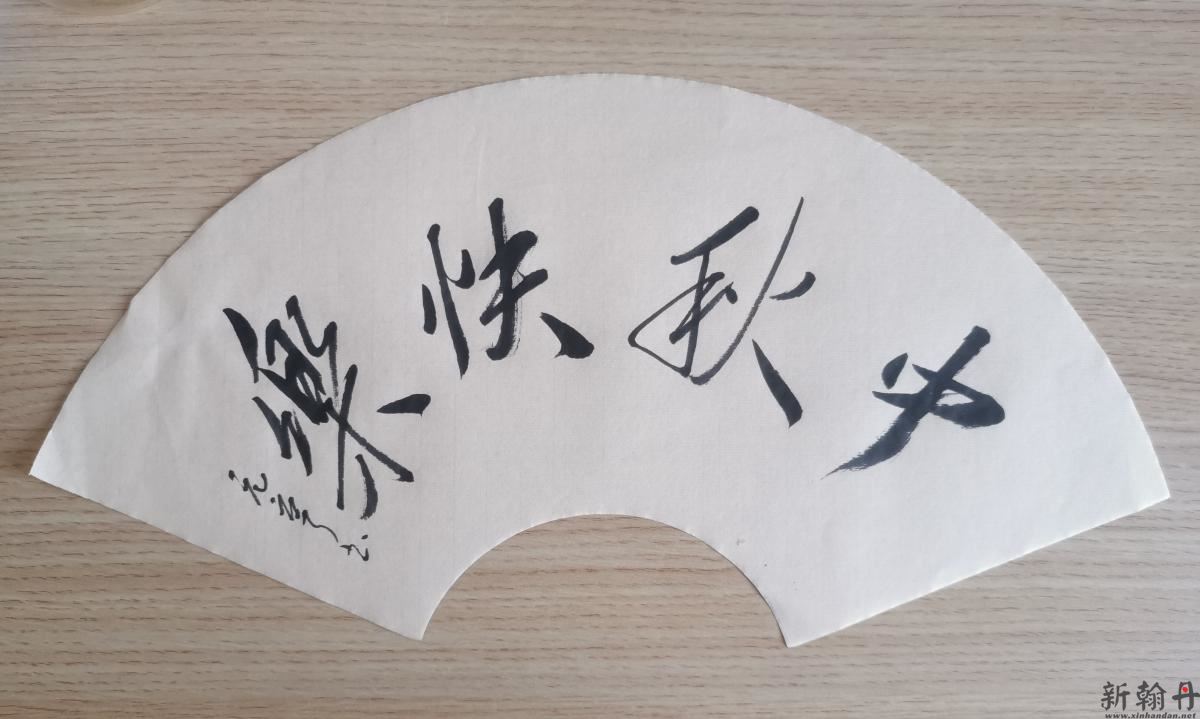 父秋快樂
新翰丹
www.xinhandan.net